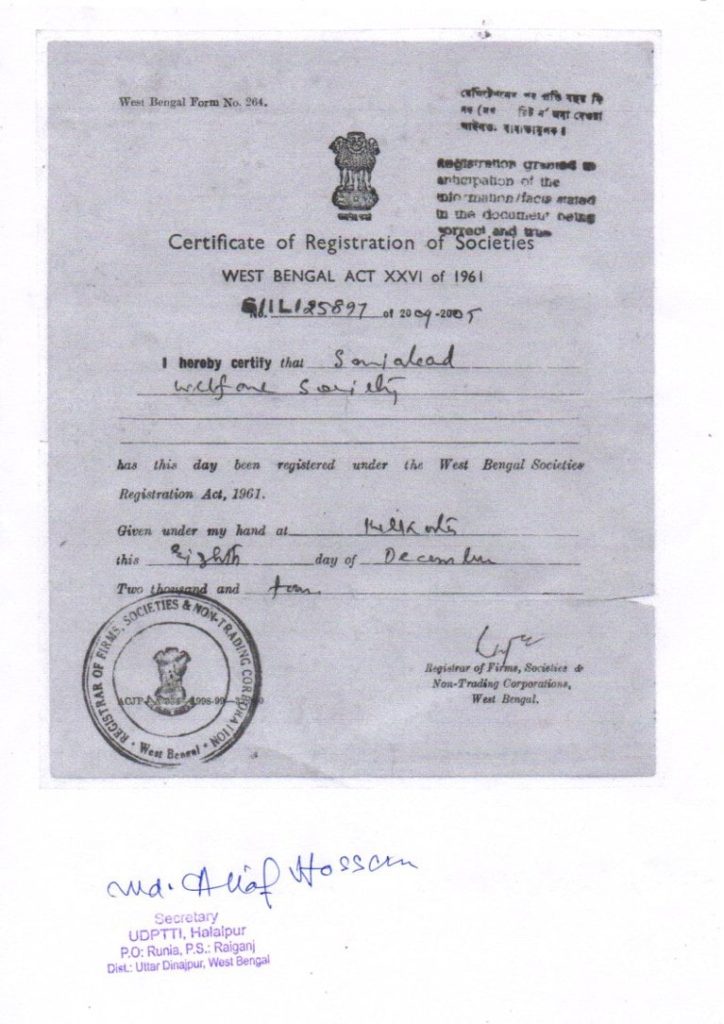 West Bengal Form No. 264.
Registration granted in
anticipation of the
information/facts stated
in the document being
correct and true
Certificate of Registration of Societies
WEST BENGAL ACT XXVI of 1961
S/1L/25897 of 2004-2005
I hereby certify that
Welfare Society
has this day been registered under the West Bengal Societies
Registration Act, 1961.
Given under my hand at Kolkata
this Eighth day of December
Two thousand and
REGISTRAR OF FIRMS, SOCIETIES & NON-TRADING CORPORATION
West Bengal
Registrar of Firms, Societies &
Non-Trading Corporations,
West Bengal.
Md. Altaf Hossain
Secretary
UDPTTI, Halalpur
P.O: Runia, P.S.: Raiganj
Dist.: Uttar Dinajpur, West Bengal